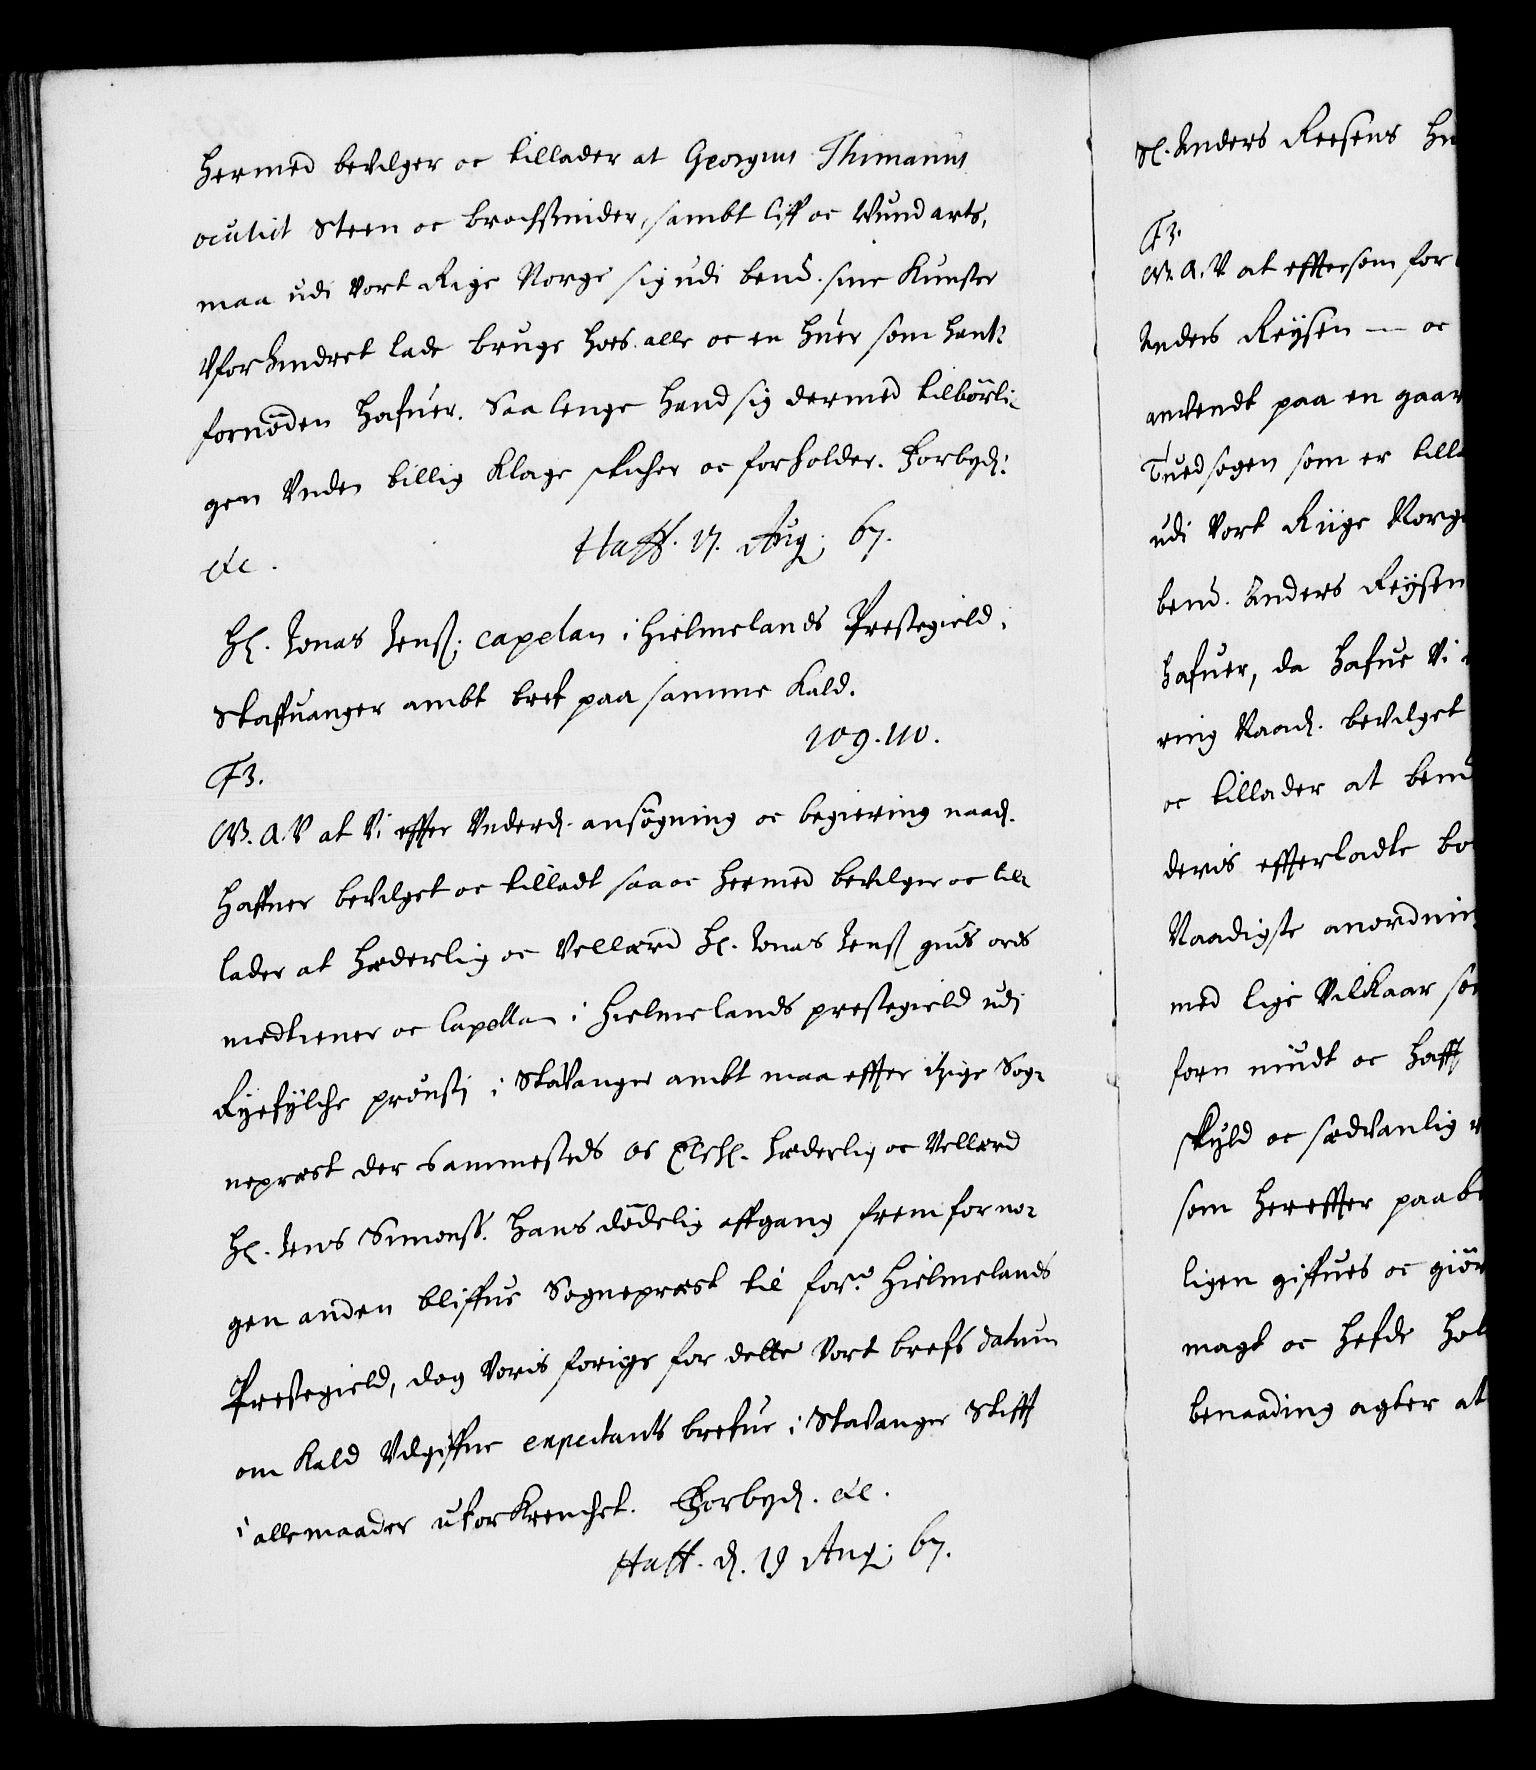 hermed bevilger oc tillader at Georgius Thimanus
oculist Steen oc brochsnider, sambt liff oc Wundarts,
maa udi Vort Rige Norge sig udi bend. sine Kunster
Vforhindret lade bruge hoes alle oc en huer som hans
fornöden hafuer. Saa lenge hand sig dermed tilbörli-
gen Vnden billig Klage skicher oc forholder. Forbyd:
etc. Haff. 17. Aug: 67.
Hr. Jonas Jenss: capelan i Hielmelands Prestegield i
Staffuanger ambt bref paa samme Kald.
109. 110.
F3.
W. A. V at Vi effter Vnderd. ansögning oc begiering naad.
haffuer bevilget oc tilladt saa oc hermed bevilger oc til-
lader at hæderlig oc Vellærd Hr. Jonas Jenss guds ords
medtiener oc Capellan i Hielmelands prestegield udj
Ryefylche proustj i Stavanger ambt maa effter itzige Sog-
neprest der sammesteds os Elskl. hæderlig oc Vellærd
Hr. Jens Simonss. hans dödelig affgang frem for no-
gen anden bliffue Sogneprest til for.ne Hielmelands
Prestegield, dog Voris forige for dette Vort brefs datum
om Kald Vdgiffne expectants brefue i Stavanger Stifft
i alle maader uforkrenchet. Forbyd. etc.
Haff. d. 19 Aug: 67.
Sl. Anders Reesens
F3.
W. A. V at efftersom for
Anders Reysen — oc
anvendt paa en gaar
Tuedsogen som er till
udi Vort Riige Norge
bend. Anders Reysen
hafuer, da hafue Vi
ring Naad. bevilget
oc tillader at bend
deris effterladte bo
Naadigste anordnin
med lige Vilkaar so
forn nüdt oc hafft
skyld oc sædvanlig
som hereffter paab
ligen giffues oc giör
magt oc hefde hol
benaading agter at